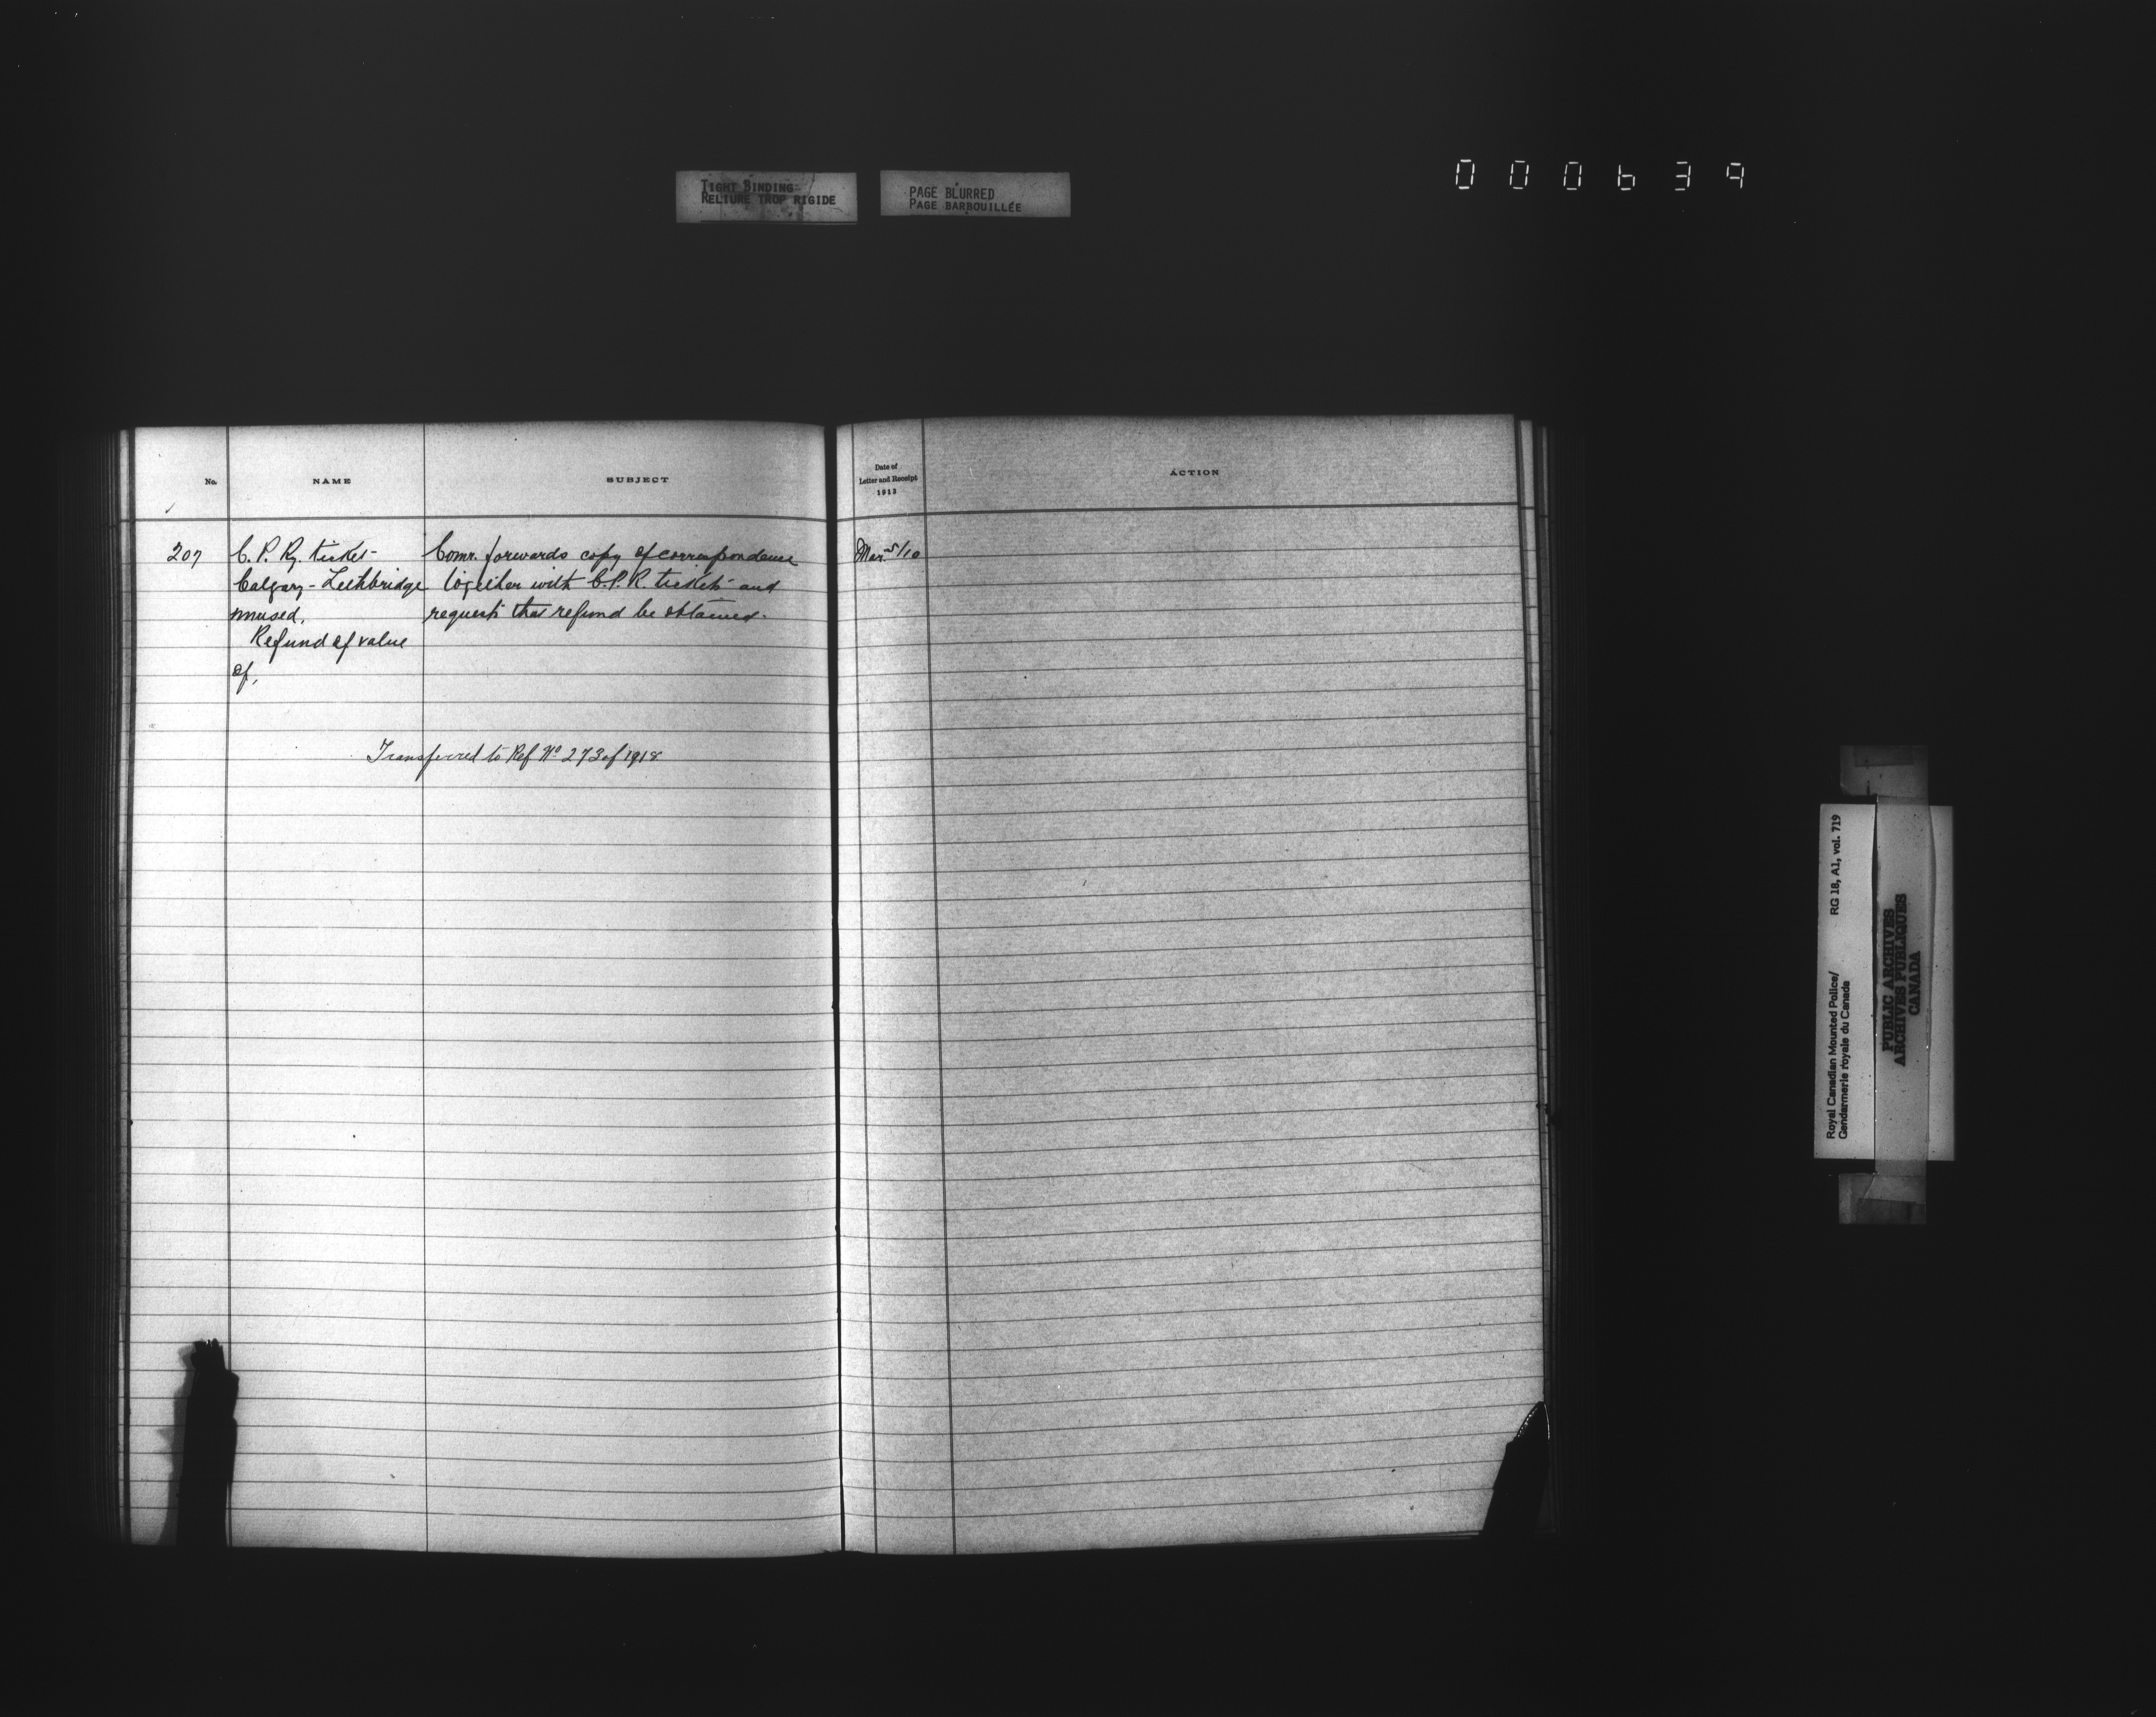 TIGHT BINDING
RELIURE TROP RIGIDE
PAGE BLURRED
PAGE BARBOUILLÉE
000639
No.
NAME
SUBJECT
Date of
Letter and Receipt
1913
ACTION
207
C. P. Ry. ticket
Calgary - Lethbridge
unused,
Refund of value
of,
Comr. forwards copy of correspondence
together with C.P.R. tickets and
requests that refund be obtained.
Mar 5/10
Transferred to Ref No 273 of 1918
Royal Canadian Mounted Police/
Gendarmerie royale du Canada
RG 18, A1, vol. 719
PUBLIC ARCHIVES
ARCHIVES PUBLIQUES
CANADA